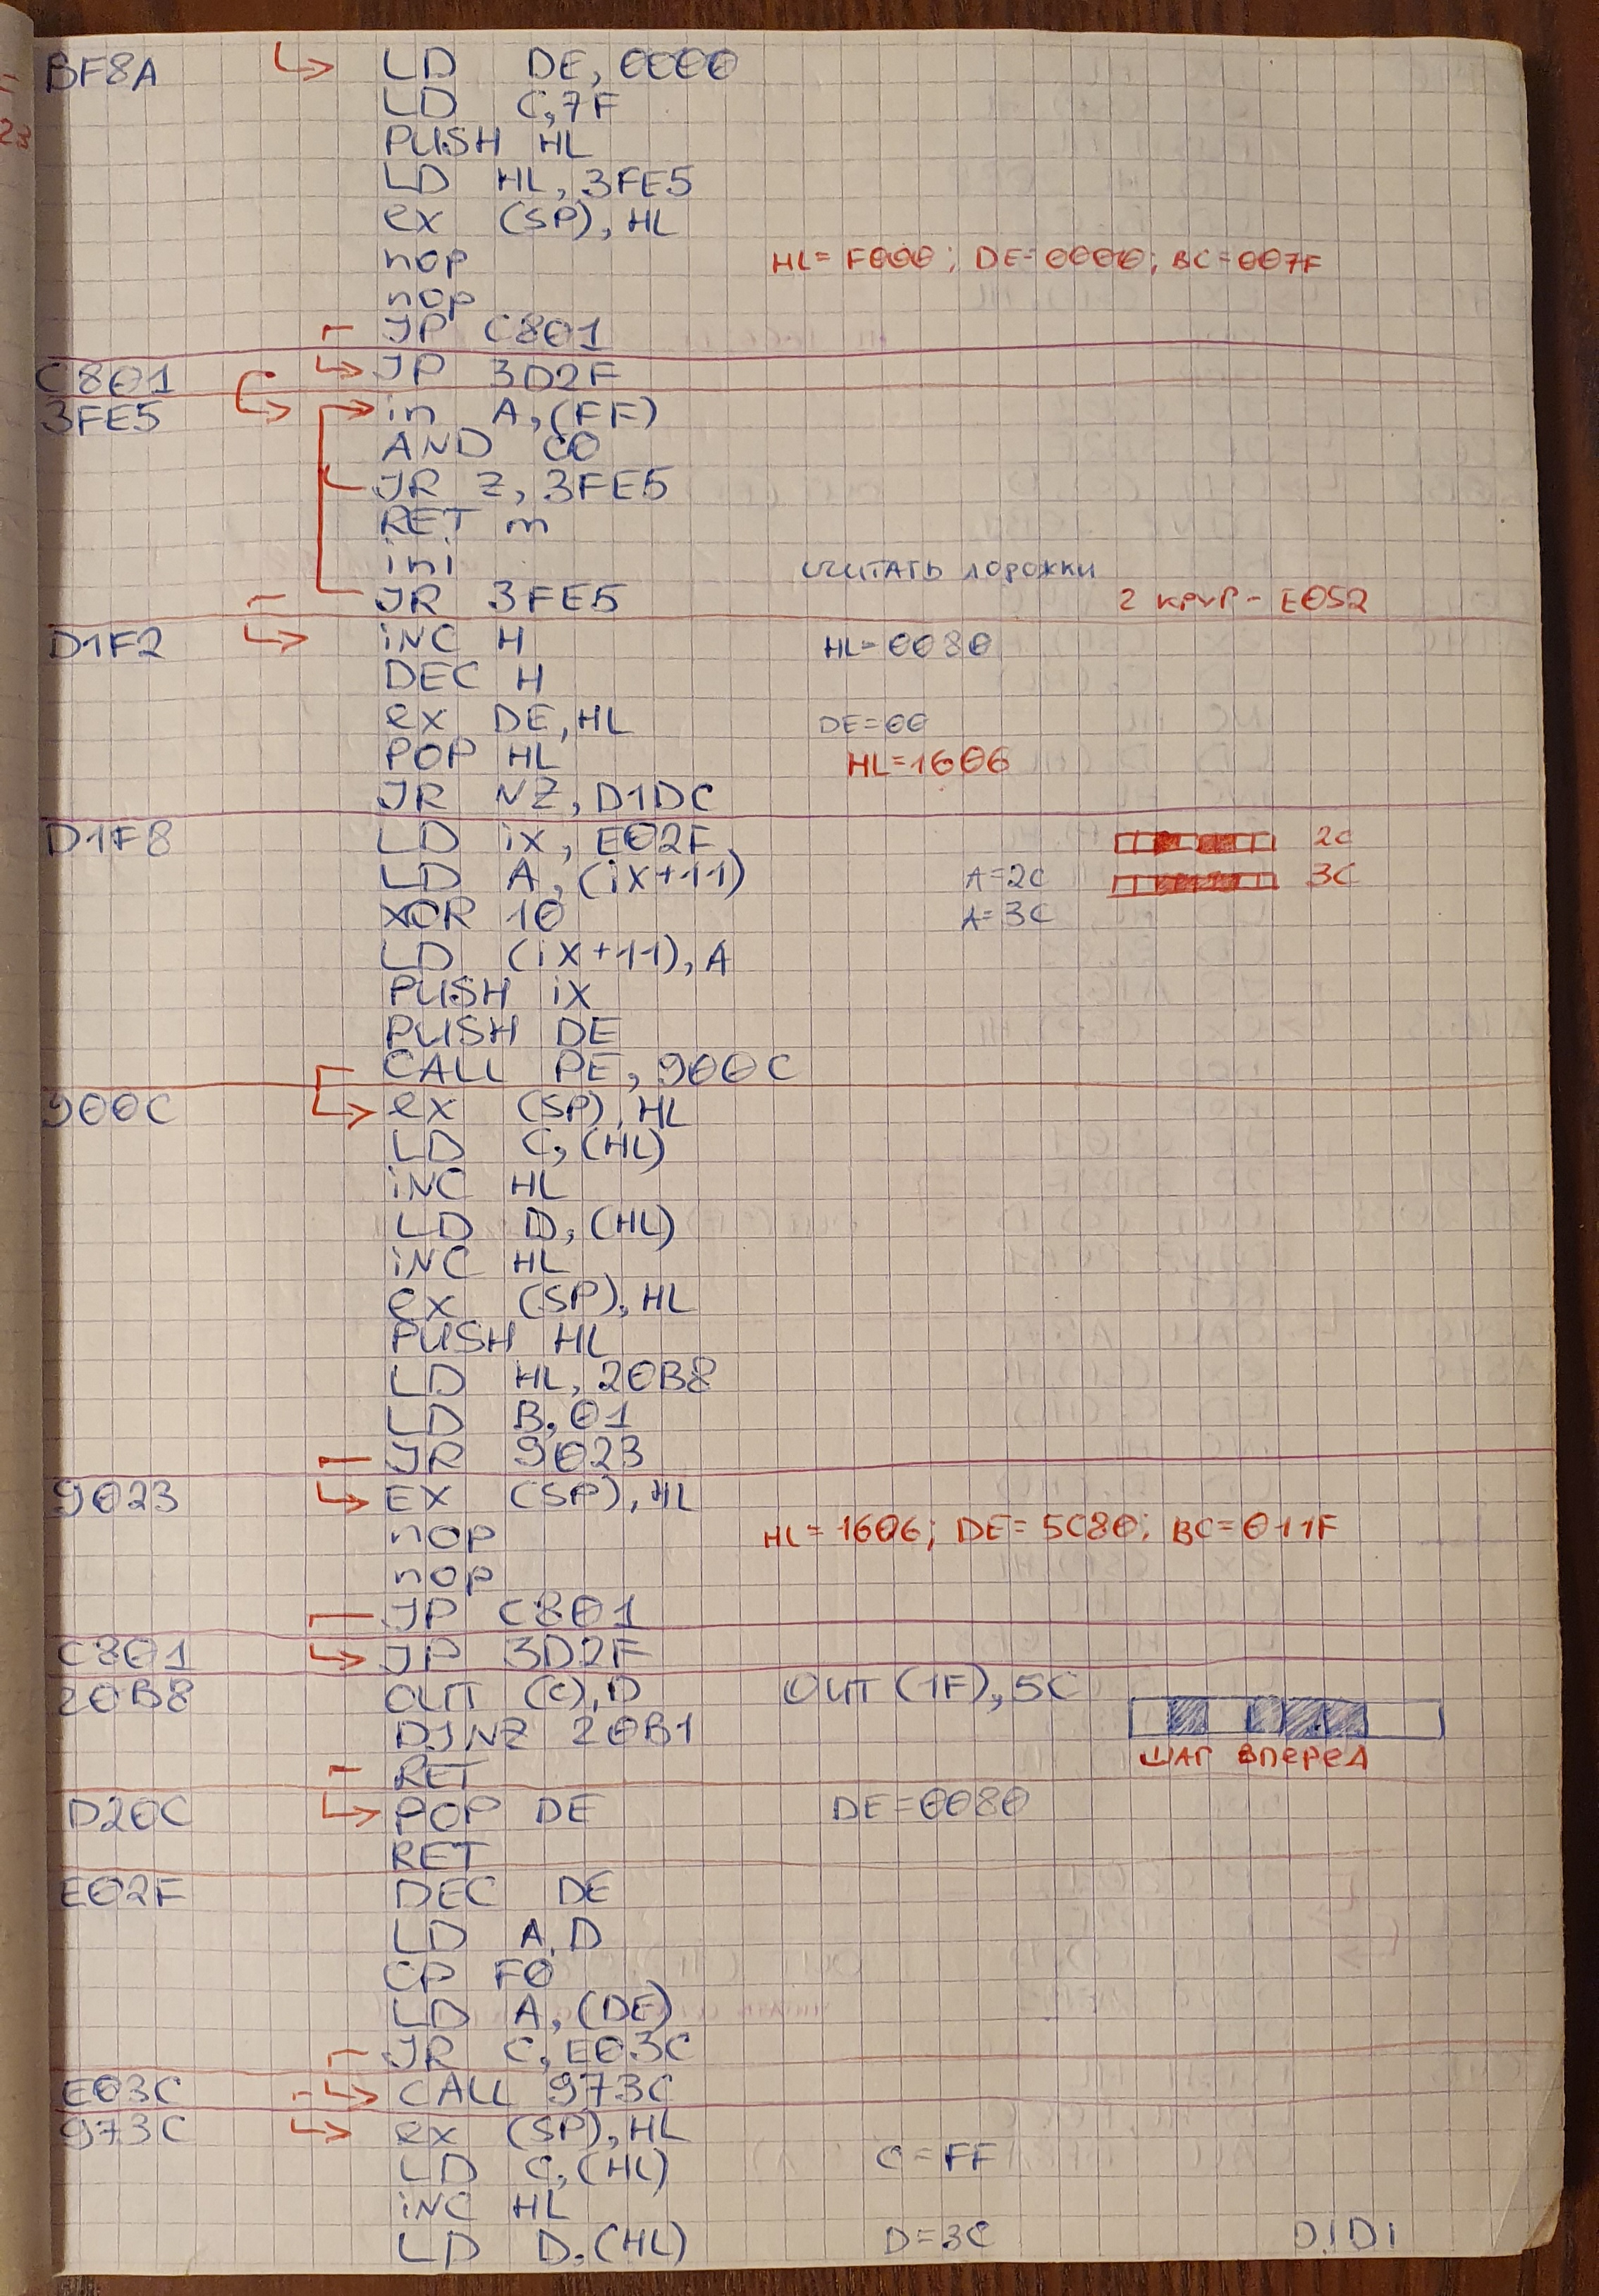 BF8A LD DE, 0000
LD C,7F
PUSH HL
LD HL, 3FE5
ex (SP), HL
nop HL= F000; DE=0000; BC=007F
nop
JP C801
C801 JP 3D2F
3FE5 in A,(FF)
AND C0
JR Z, 3FE5
RET m
ini СЧИТАТЬ ДОРОЖКИ
JR 3FE5 2 КРУГ - E052
D1F2 INC H HL=0080
DEC H
ex DE, HL DE=00
POP HL HL=1606
JR NZ, D1DC
D1F8 LD iX, E02F 2C
LD A, (iX+11) A=2C 3C
XOR 10 A=3C
LD (iX+11), A
PUSH iX
PUSH DE
CALL PE, 900C
900C ex (SP), HL
LD C, (HL)
INC HL
LD D, (HL)
INC HL
ex (SP), HL
PUSH HL
LD HL, 20B8
LD B, 01
JR 9023
9023 EX (SP), HL
nop HL=1606; DE=5C80; BC=011F
nop
JP C801
C801 JP 3D2F
20B8 OUT (C), D OUT (1F), 5C
DJNZ 20B1
RET ШАГ ВПЕРЕД
D20C POP DE DE=0080
RET
E02F DEC DE
LD A, D
CP F0
LD A, (DE)
JR C, E03C
E03C CALL 973C
973C ex (SP), HL
LD C, (HL) C=FF
INC HL
LD D, (HL) D=3C